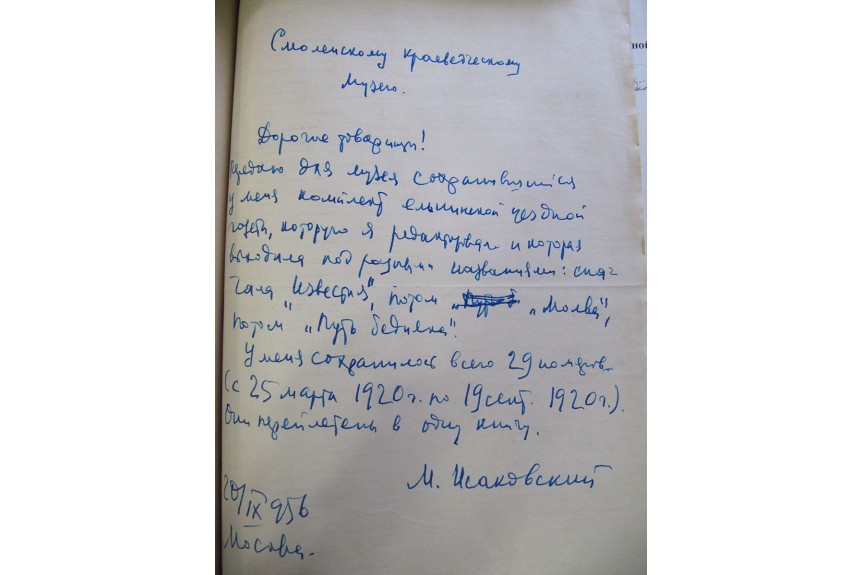 Смоленскому краеведческому
музею.
Дорогие товарищи!
Передаю для музея сохранившийся
у меня комплект ельнинской уездной
газеты, которую я редактировал и которая
выходила под разными названиями: сна-
чала "Известия", потом "Молва",
потом "Путь бедняка".
У меня сохранилось всего 29 номеров.
(с 25 марта 1920 г. по 19 сент. 1920 г.).
Они переплетены в одну книгу.
М. Исаковский
20/IX 956
Москва.
ной